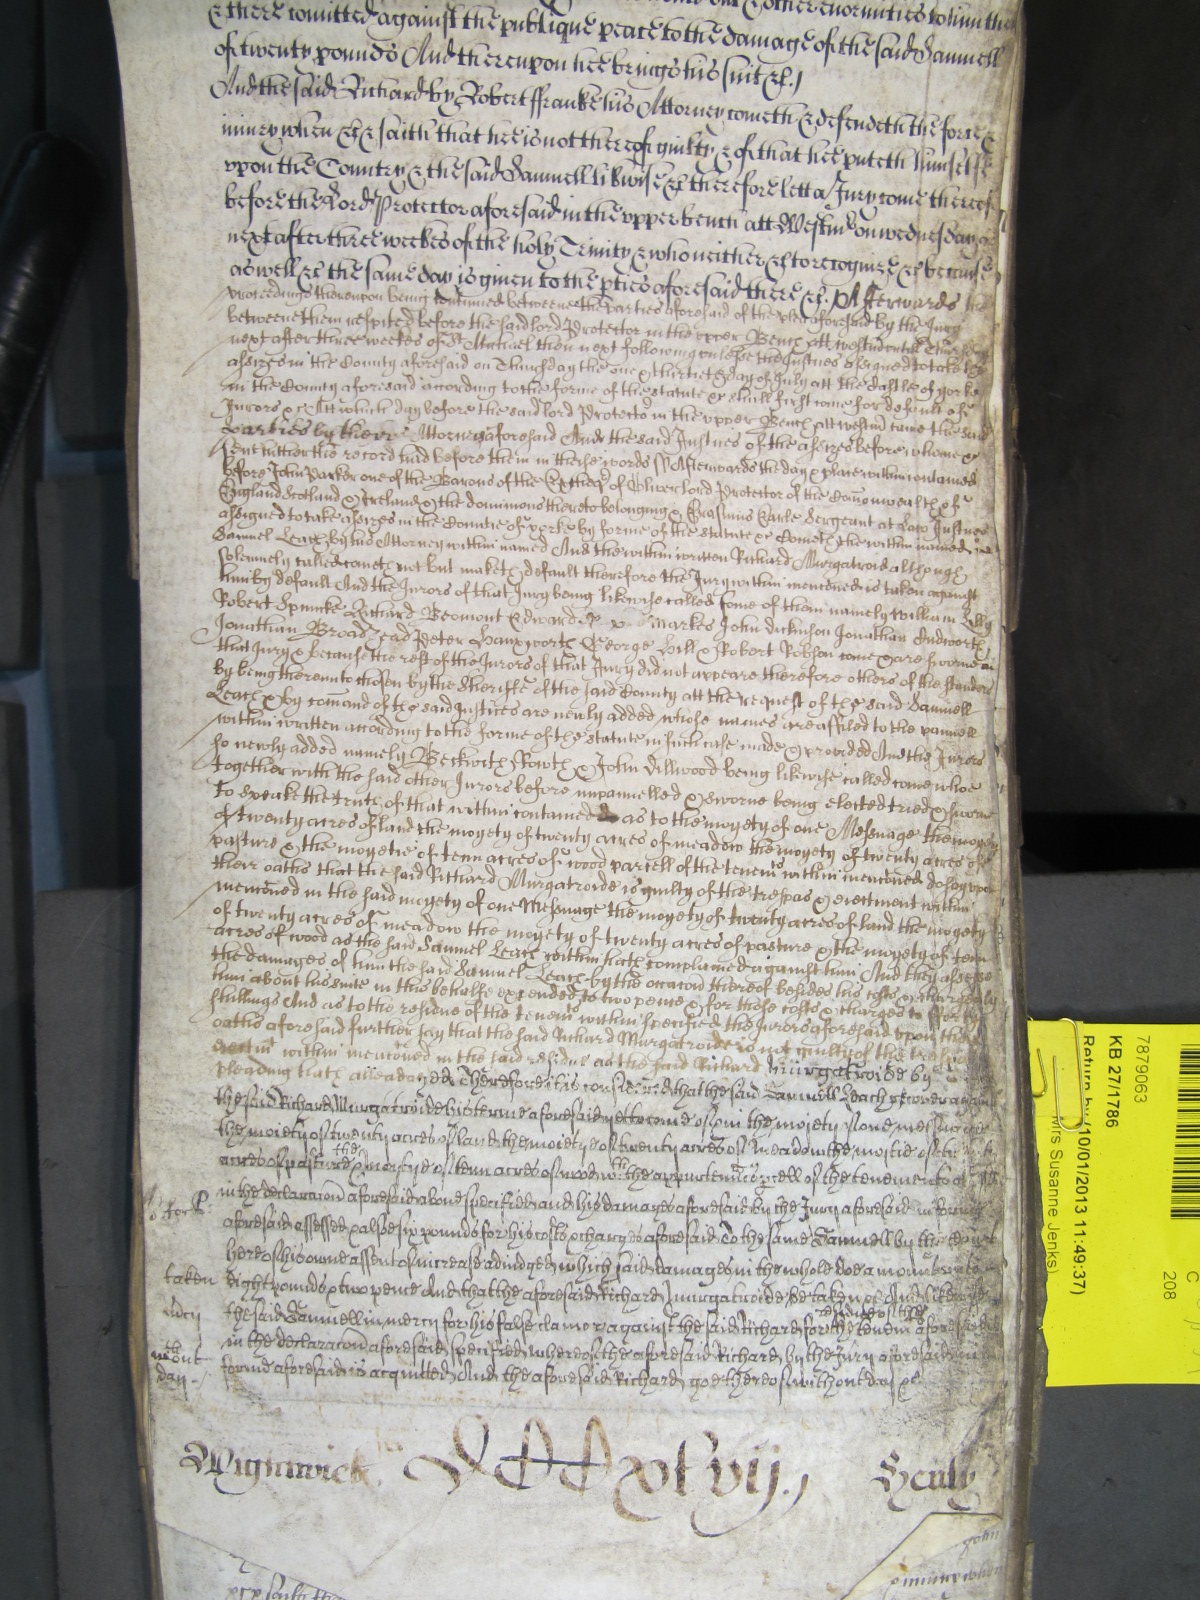 & there comitted against the publique peace to the damage of the said Samuell
of twenty pounds And thereupon hee brings his suit &c.
And the said Richard by Robert ffranke his Attorney cometh & defendeth the force &
iniury when &c & saith that hee is not thereof guilty & of that hee puteth himselfe
vpon the Country & the said Samuell likwise &c therefore lett a Jury come thereof
before the Lord Protector aforesaid in the vpper bench att Westm on wednesday
next after three weekes of the holy Trinity & who neither &c to recognize &c because
aswell &c the same day is giuen to the pties aforesaid there &c. Afterwards the
proceedings thereupon being continued betweene the parties aforesaid of the plea aforesaid by the Jury
betweene them respited before the said lord Protector in the vpper Bench att westm vntill Thursday
next after three weekes of St Michael then next following vnlesse the Justices assigned to take the
assizes in the County aforesaid on Thursday the one & thirtieth day of July att the Castle of yorke
in the County aforesaid according to the forme of the statute &c shall first come for default of
Jurors &c Att which day before the said lord Protector in the vpper Bench att westm came the said
parties by their Attorneys aforesaid And the said Justices of the assizes before whome &c
sent hither the record had before them in these words ss Afterwards the day & place within contained
before John Parker one of the Barons of the Excheqr of Oliver lord Protector of the Comonwealth of
England Scotland & Ireland & the dominions thereto belonging & Erasmus Earle Sergeant at Law Justices
assigned to take assizes in the Countie of yorke by forme of the statute &c Cometh the within named
Samuel Leach by his Attorney within named And the within written Richard Murgatroid although
solemnely called cometh not but maketh default therefore the Jury within mencioned is taken against
him by default And the Jurors of that Jury being likewise called some of them namely William Lilly
Robert Spincke Richard Beomont Edward Markes John Dickinson Jonathan Sudworth
Jonathan Broad head Peter Hauxworth George Bill & Robert Robson come & are sworne on
that Jury & because the rest of the Jurors of that Jury did not appeare therefore others of the standers
by being therevnto chosen by the Sheriffe of the said County att the request of the said Samuell
Leach & by comand of the said Justices are newly added whose names are affiled to the pannell
within written according to the forme of the statute in such case made & provided And the Jurors
so newly added namely Beckwith Rowth & John Dillwood being likewise called come who
together with the said other Jurors before impannelled & sworne being elected tried & sworne
To speake the truth of that within contained as to the moyety of one Messuage the moyety
of twenty acres of land the moyety of twenty acres of meadow the moyety of twenty acres of
pasture & the moyetie of tenn acres of wood parcell of the tenemts within mencioned do say vpon
their oathes that the said Richard Murgatroide is guilty of the trespas & eiectment within
mencioned in the said moyety of one Messuage the moyety of twenty acres of land the moyety
of twenty acres of meadow the moyety of twenty acres of pasture & the moyety of tenn
acres of wood as the said Samuel Leach within hath complained against him And they assesse
the damages of him the said Samuel Leach by the occasion thereof besides his costs & charges by
him about his suite in this behalfe expended to two pence & for those costs & charges to forty
shillings And as to the residue of the tenemts within specified the Jurors aforesaid vpon their
oathes aforesaid further say that the said Richard Murgatroide is not guilty of the trespas
eiectmt within mencioned in the said residue as the said Richard Murgatroide by
pleading hath alleadged Therefore it is considered that the said Samuell Leach recover against
the said Richard Murgatroide his terme aforesaid yet to come of & in the moiety of one messuage
the moiety of twenty acres of land the moiety of twenty acres of meadow the moitie of twenty
acres of pasture & the moyetye of tenn acres of wood wth the appurtenncs pcell of the tenements
in the declaracon aforesaid aboue specified and his damages aforesaid by the Jury aforesaid in forme
aforesaid assessed & alsoe six pounds for his costs & charges aforesaid To the same Samuell by the Court
here of his owne assent of increase adiudged which said damages in the whole doe amount vnto
taken
Eight pounds & two pence And that the aforesaid Richard Murgatroide be taken &c And likewise
mercy
the said Samuell in mercy for his false clamor against the said Richard for the residue of the tenemts aforesaid
in the declaracon aforesaid specified whereof the aforesaid Richard by the Jury aforesaid in
without day
found aforesaid is acquitted And the aforesaid Richard goe thereof without day &c
Wightwick
xlvij.
Sculy
7879063
KB 27/1786
Return by (10/01/2013 11:49:37)
Mrs Susanne Jenks)
C
208